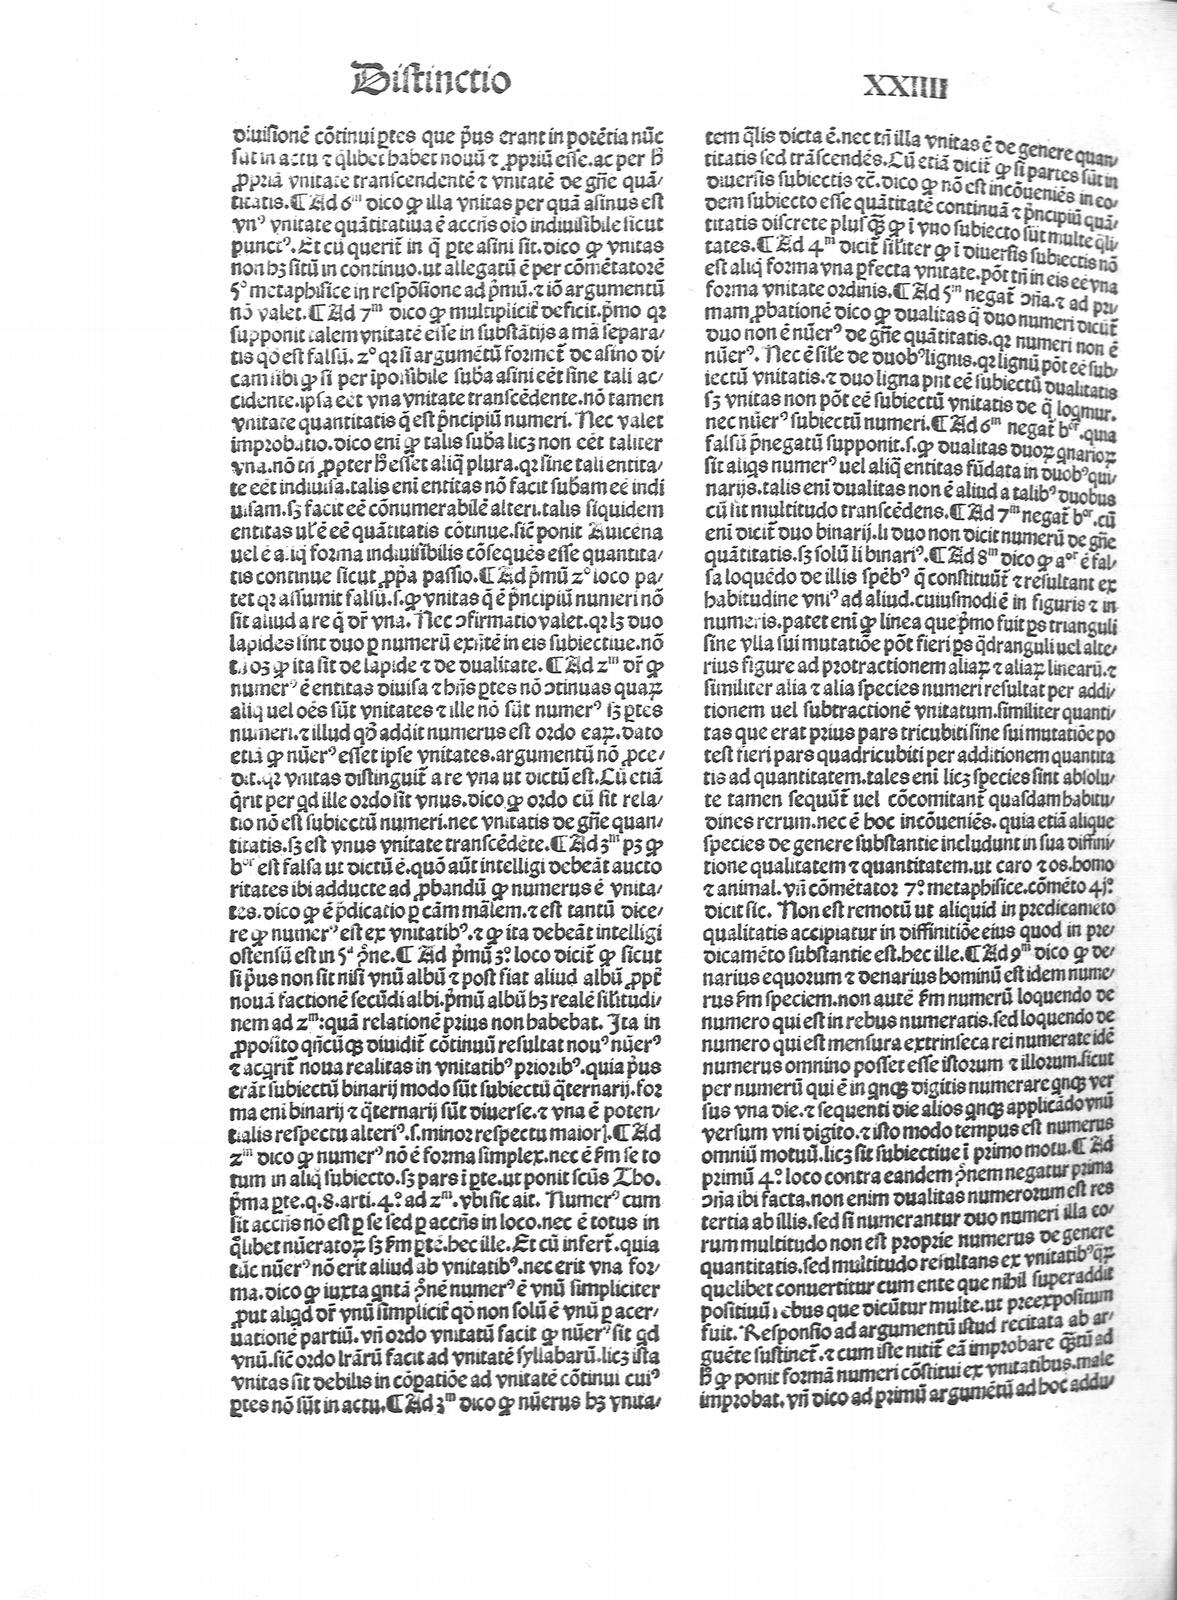 Distinctio
XXIIII
diuisionē cōtinui ꝑtes que p̄us erant in potētia nūc
sūt in actu ⁊ q̄libet habet nouū ⁊ ꝓpriū esse. ac per ħ
ꝓpriā vnitatē transcendentē ⁊ vnitatē de gn̄e quā/
titatis. ¶ Ad 6ᵐ dico ꝙ illa vnitas per quā asinus est
vnꝰ vnitate quātitatiua ē accn̄s oīo indiuisibile sicut
punctꝰ. Et cū querit̄ in q̄ ꝑte asini sit. dico ꝙ vnitas
non hꝫ sitū in continuo. ut allegatū ē per cōmētatorē
5° metaphisice in respōsione ad p̄mū. ⁊ iō argumentū
nō valet. ¶ Ad 7ᵐ dico ꝙ multiplicit̄ deficit. p̄mo qꝛ
supponit talem vnitatē esse in substātijs a mā separa/
tis qđ est falsū. 2° qꝛ si argumētū formet̄ de asino di/
cam tibi ꝙ si per ipossibile suba asini eēt sine tali ac/
cidente. ipsa eēt vna vnitate transcēdente. nō tamen
vnitate quantitatis q̄ est p̄ncipiū numeri. Nec valet
improbatio. dico enī ꝙ talis suba licꝫ non eēt taliter
vna. nō tn̄ ꝓpter ħ esset aliq̄ plura. qꝛ sine tali entita/
te eēt indiuisa. talis enī entitas nō facit subam eē indi
uisam. sꝫ facit eē cōnumerabilē alteri. talis siquidem
entitas vr̄ eē eē quātitatis cōtinue. sic̄ ponit Auicena
uel ē aliq̄ forma indiuisibilis cōsequēs esse quantita/
tis continue sicut ꝓpa passio. ¶ Ad p̄mū 2° loco pa/
tet qꝛ assumit falsū. s. ꝙ vnitas q̄ ē p̄ncipiū numeri nō
sit aliud a re q̄ dr̄ vna. Nec ↄfirmatio valet. qꝛ lꝫ duo
lapides sint duo ꝑ numerū exn̄tē in eis subiectiue. nō
t̄ oꝫ ꝙ ita sit de lapide ⁊ de dualitate. ¶ Ad 2ᵐ dr̄ ꝙ
numerꝰ ē entitas diuisa ⁊ hn̄s ꝑtes nō ↄtinuas quaꝝ
aliq̄ uel oēs sūt vnitates ⁊ ille nō sūt numerꝰ sꝫ ꝑtes
numeri. ⁊ illud qđ addit numerus est ordo eaꝝ. dato
etiā ꝙ nūerꝰ esset ipse vnitates. argumentū nō ꝓce/
dit. qꝛ vnitas distinguit̄ a re vna ut dictū est. Cū etiā
q̄rit per qd ille ordo sit vnus. dico ꝙ ordo cū sit rela/
tio nō est subiectū numeri. nec vnitatis de gn̄e quan/
titatis. sꝫ est vnus vnitate transcēdēte. ¶ Ad 3ᵐ pꝫ ꝙ
bᵒʳ est falsa ut dictū ē. quō aūt intelligi debeāt aucto
ritates ibi adducte ad ꝓbandū ꝙ numerus ē vnita/
tes. dico ꝙ ē p̄dicatio ꝑ cām mālem. ⁊ est tantū dice/
re ꝙ numerꝰ est ex vnitatibꝰ. ⁊ ꝙ ita debeāt intelligi
ostensū est in 5ᵃ ꝯne. ¶ Ad p̄mū 3° loco dicit̄ ꝙ sicut
si p̄us non sit nisi vnū albū ⁊ post fiat aliud albū ꝓpt̄
nouā factionē secūdi albi. p̄mū albū hꝫ realē sil̄itudi/
nem ad 2ᵐ: quā relationē prius non habebat. Ita in
ꝓposito qn̄cūqꝫ diuidit̄ cōtinuū resultat nouꝰ nūerꝰ
⁊ acq̄rit̄ noua realitas in vnitatibꝰ prioribꝰ. quia p̄us
erāt subiectū binarij modo sūt subiectū q̄ternarij. for
ma eni binarij ⁊ q̄ternarij sūt diuerse. ⁊ vna ē poten/
tialis respectu alteriꝰ. s. minor respectu maioris. ¶ Ad
2ᵐ dico ꝙ numerꝰ nō ē forma simplex. nec ē fm se to
tum in aliq̄ subiecto. sꝫ pars ī ꝑte. ut ponit scūs Tho.
p̄ma ꝑte. q. 8. arti. 4° ad 2ᵐ. vbi sic ait. Numerꝰ cum
sit accn̄s nō est ꝑ se sed ꝑ accn̄s in loco. nec ē totus in
q̄libet nūeratoꝝ sꝫ fm ꝑtē. hec ille. Et cū infert̄. quia
tūc nūerꝰ nō erit aliud ab vnitatibꝰ. nec erit vna for/
ma. dico ꝙ iuxta qntā ꝯnē numerꝰ ē vnū simpliciter
ꝓut aliqd dr̄ vnū simplicit̄ qđ non solū ē vnū ꝑ acer/
uationē partiū. vn̄ ordo vnitatū facit ꝙ nūerꝰ sit qd
vnū. sic̄ ordo lrārū facit ad vnitatē syllabarū. licꝫ ista
vnitas sit debilis in cōpatiōe ad vnitatē cōtinui cuiꝰ
ꝑtes nō sūt in actu. ¶ Ad 3ᵐ dico ꝙ nūerus hꝫ vnita/
tem q̄lis dicta ē. nec tn̄ illa vnitas ē de genere quan/
titatis sed trāscendēs. Cū etiā dicit̄ ꝙ si partes sūt in
diuersis subiectis ⁊c̄. dico ꝙ nō est incōueniēs in eo/
dem subiecto esse quātitatē continuā ⁊ p̄ncipiū quā/
titatis discrete plusqꝫ ꝙ ī vno subiecto sūt multe q̄li/
tates. ¶ Ad 4ᵐ dicit̄ sil̄iter ꝙ ī diuersis subiectis nō
est aliq̄ forma vna ꝑfecta vnitate. pōt tn̄ in eis eē vna
forma vnitate ordinis. ¶ Ad 5ᵐ negat̄ ↄn̄a. ⁊ ad pri/
mam ꝓbationē dico ꝙ dualitas q̄ duo numeri dicūt̄
duo non ē nūerꝰ de gn̄e quātitatis. qꝛ numeri non ē
nūerꝰ. Nec ē sil̄e de duobꝰ lignis. qꝛ lignū pōt eē sub/
iectū vnitatis. ⁊ duo ligna pn̄t eē subiectū dualitatis
sꝫ vnitas non pōt eē subiectū vnitatis de q̄ loqmur.
nec nūerꝰ subiectū numeri. ¶ Ad 6ᵐ negat̄ bᵒʳ. quia
falsū p̄negatū supponit. s. ꝙ dualitas duoꝝ qnarioꝝ
sit aliqs numerꝰ uel aliq̄ entitas fūdata in duobꝰ qui/
narijs. talis eni dualitas non ē aliud a talibꝰ duobus
cū sit multitudo transcēdens. ¶ Ad 7ᵐ negat̄ bᵒʳ. cū
eni dicit̄ duo binarij. li duo non dicit numerū de gn̄e
quātitatis. sꝫ solū li binariꝰ. ¶ Ad 8ᵐ dico ꝙ aᵒʳ ē fal/
sa loquēdo de illis spēbꝰ q̄ constituūt̄ ⁊ resultant ex
habitudine vniꝰ ad aliud. cuiusmodi ē in figuris ⁊ in
numeris. patet eni ꝙ linea que p̄mo fuit ꝑs trianguli
sine vlla sui mutatiōe pōt fieri ꝑs q̄dranguli uel alte/
rius figure ad protractionem aliaꝝ ⁊ aliaꝝ linearū. ⁊
similiter alia ⁊ alia species numeri resultat per addi/
tionem uel subtractionē vnitatum. similiter quanti/
tas que erat prius pars tricubiti sine sui mutatiōe po
test fieri pars quadricubiti per additionem quantita
tis ad quantitatem. tales eni licꝫ species sint absolu/
te tamen sequūt̄ uel cōcomitant̄ quasdam habitu/
dines rerum. nec ē hoc incōueniēs. quia etiā alique
species de genere substantie includunt in sua diffini/
tione qualitatem ⁊ quantitatem. ut caro ⁊ os. homo
⁊ animal. vn̄ cōmētator 7° metaphisice. cōmēto 4j°
dicit sic. Non est remotū ut aliquid in predicamēto
qualitatis accipiatur in diffinitiōe eius quod in pre/
dicamēto substantie est. hec ille. ¶ Ad 9ᵐ dico ꝙ de/
narius equorum ⁊ denarius hominū est idem nume/
rus fm speciem. non autē fm numerū loquendo de
numero qui est in rebus numeratis. sed loquendo de
numero qui est mensura extrinseca rei numerate idē
numerus omnino posset esse istorum ⁊ illorum. sicut
per numerū qui ē in qnqꝫ digitis numerare qnqꝫ ver
sus vna die. ⁊ sequenti die alios qnqꝫ applicādo vnū
versum vni digito. ⁊ isto modo tempus est numerus
omniū motuū. licꝫ sit subiectiue ī primo motu. ¶ Ad
primū 4° loco contra eandem ꝯnem negatur prima
ↄn̄a ibi facta. non enim dualitas numerorum est res
tertia ab illis. sed si numerantur duo numeri illa eo/
rum multitudo non est proprie numerus de genere
quantitatis. sed multitudo resultans ex vnitatibꝰ qꝝ
quelibet conuertitur cum ente que nihil superaddit
positiuū rebus que dicūtur multe. ut preexpositum
fuit. Responsio ad argumentū istud recitata ab ar/
guēte sustinet̄. ⁊ cum iste nitit̄ eā improbare qꝫtū ad
ħ ꝙ ponit formā numeri cōstitui ex vnitatibus. male
improbat. vn̄ dico ad primū argumētū ad hoc addu/